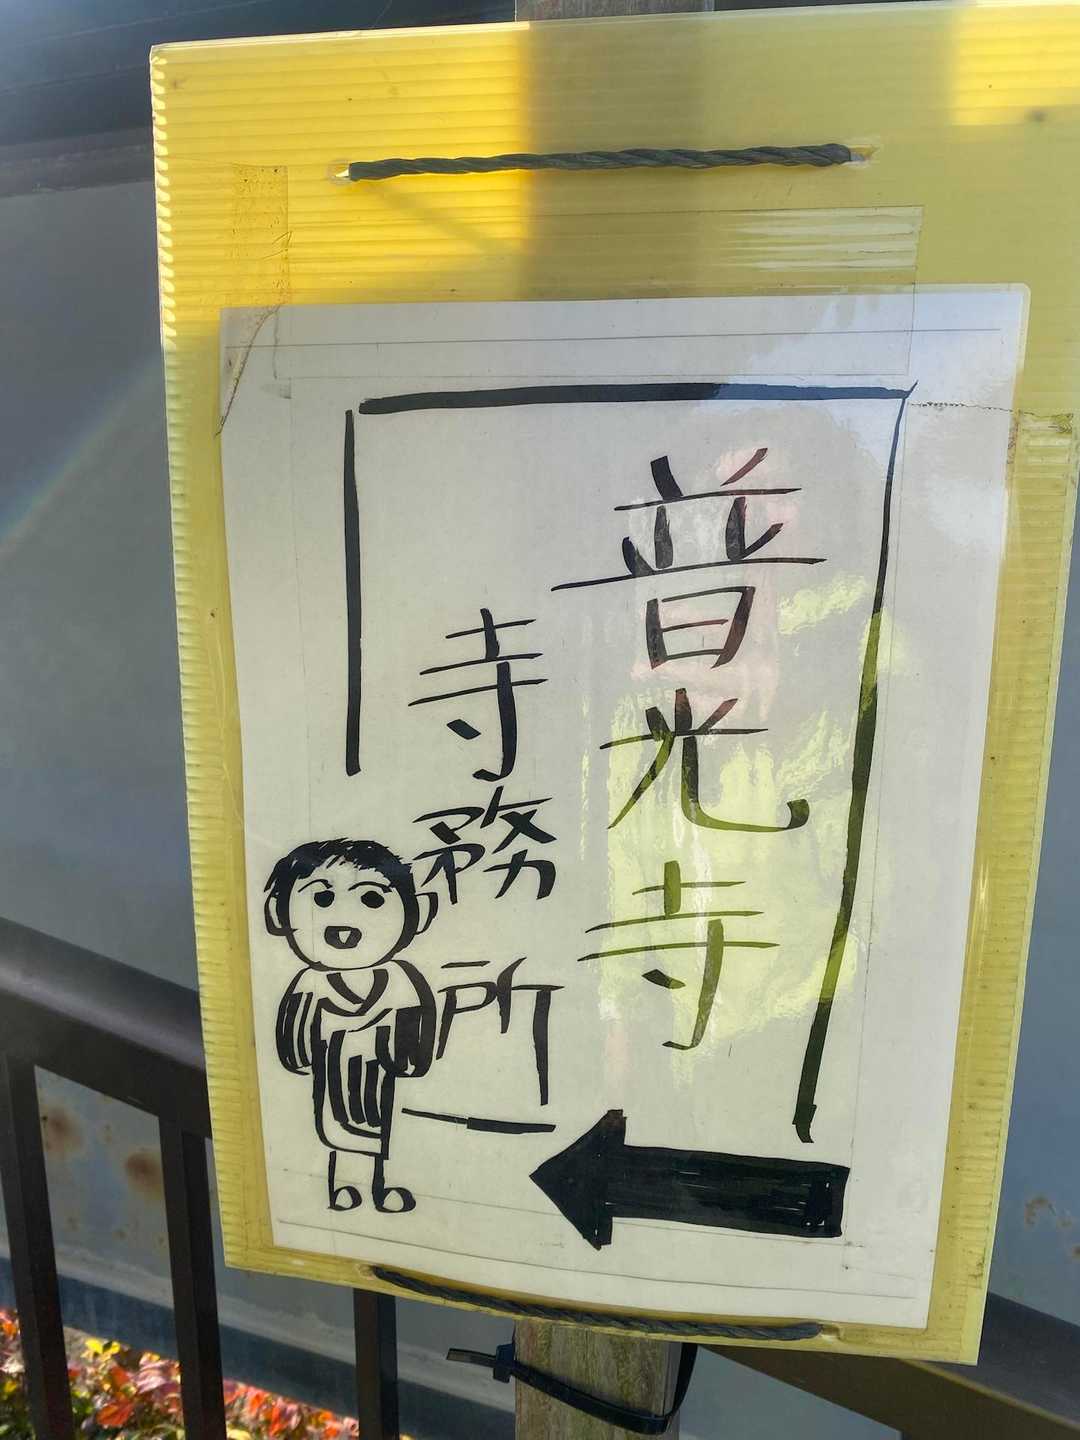 普光寺
寺務所